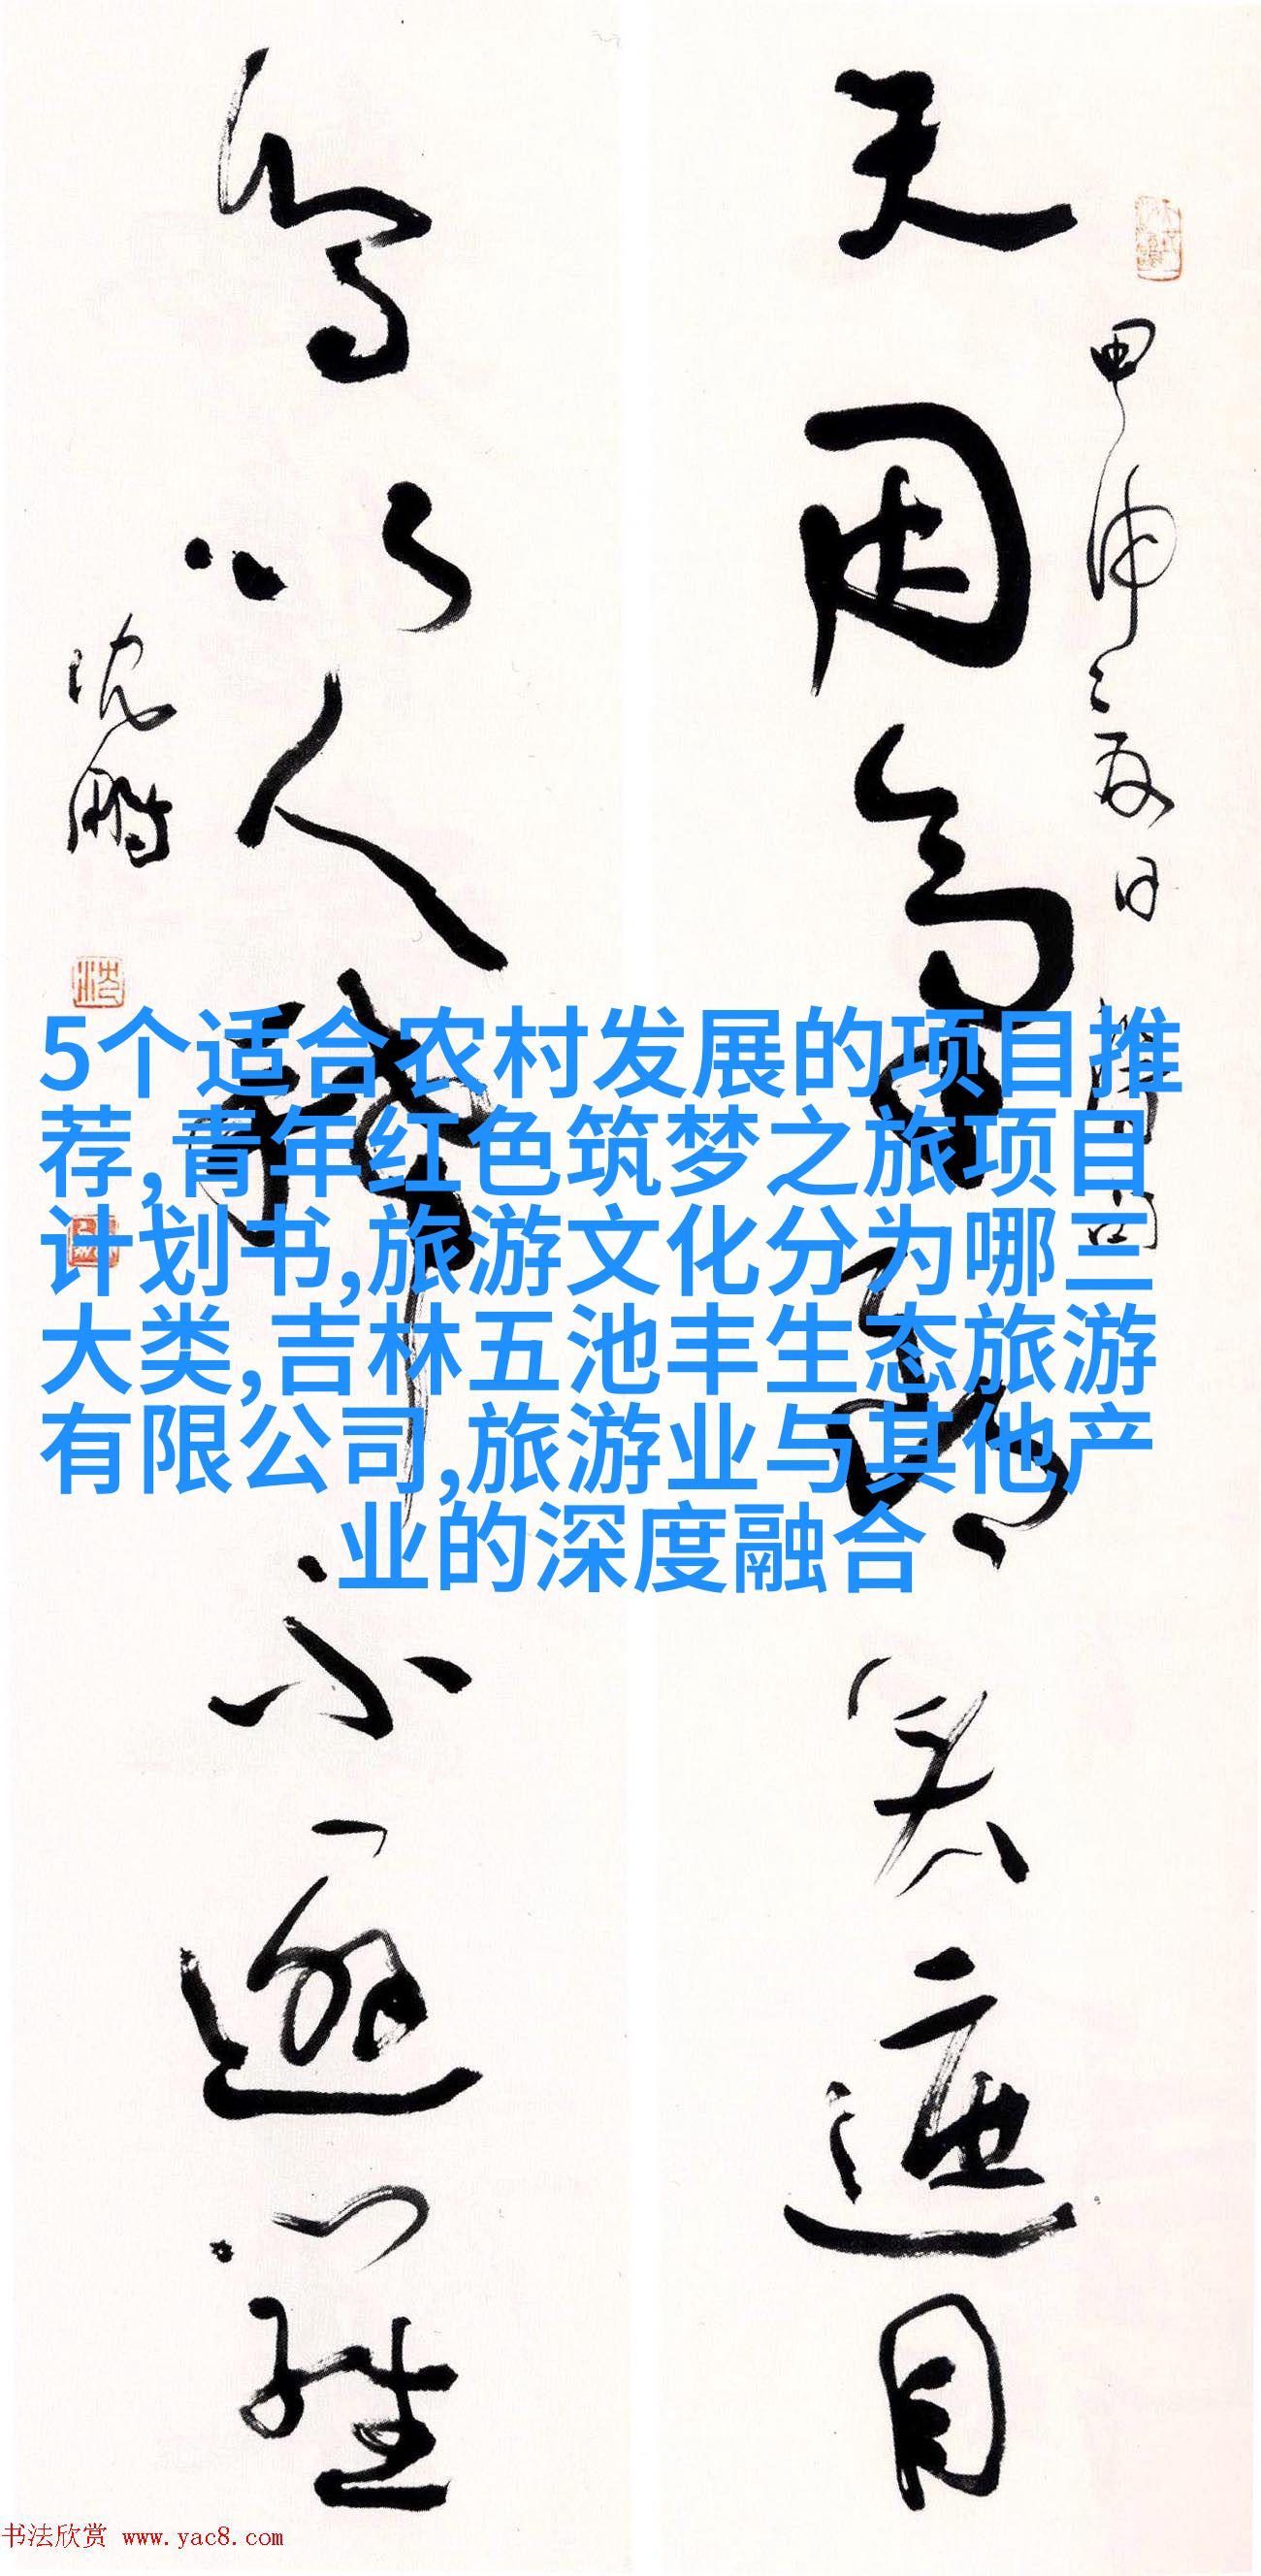 天因高遮目
甲申
鸟以人不避
沈鹏
5个适合农村发展的项目推
荐,青年红色筑梦之旅项目
计划书,旅游文化分为哪三
大类,吉林五池丰生态旅游
有限公司,旅游业与其他产
业的深度融合
书法欣赏 www.yac8.com